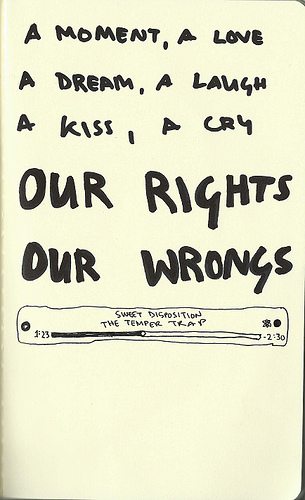 A MOMENT, A LOVE
A DREAM, A LAUGH
A KISS, A CRY
OUR RIGHTS
OUR WRONGS
SWEET DISPOSITION
THE TEMPER TRAP
1:23 -2:30